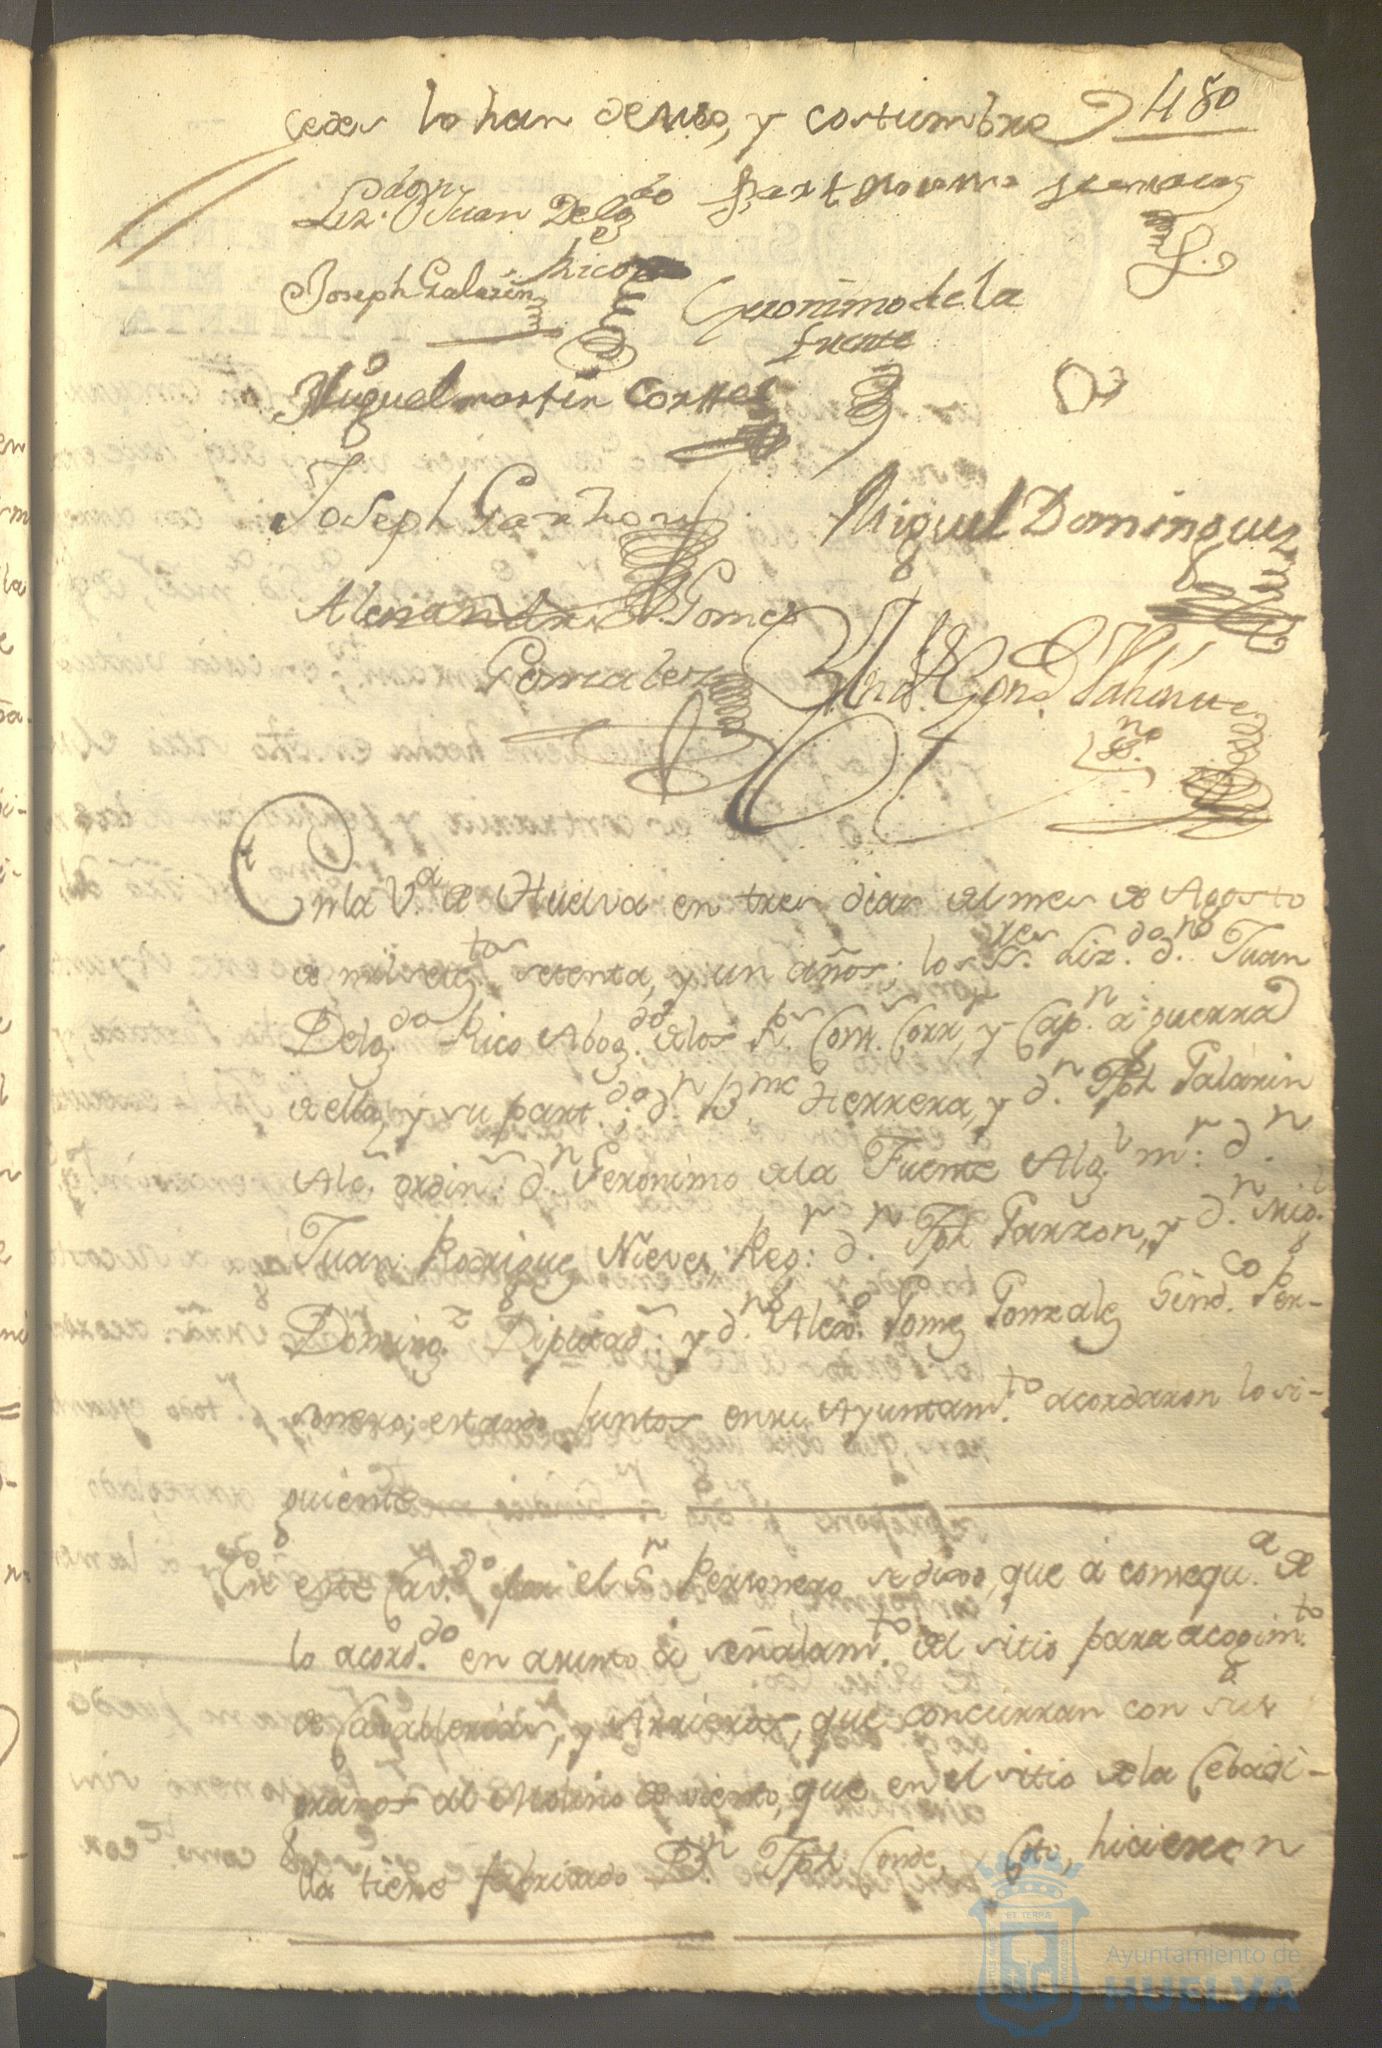 cedes lo han de uso, y costumbre 480
Liz.do don Juan Delg.do Bartholome Herrera
Rico
Joseph Galarin Geronimo de la
fuente
Miguel martin Corttes
Joseph Garzon Miguel Dominguez
Alexandro Gomez
Gonzalez
En la V.a de Huelva en tres dias del mes de Agosto
de mil set.tos setenta, y un años; los SS.res Liz.do d.n Juan
Delg.do Rico Abog.do de los R.s Cons. Corr.r y Cap.n a guerra
de ella, y su part.do; d.n B.me Herrera, y d.n Jph Galarin
Alc.s ordin.s; d.n Geronimo de la Fuente Alg.l m.r: d.n
Juan Rodriguez Nieves, Reg.r: d.n Jph Garzon, y d.n Mig.l
Doming.z Diputad.s; y d.n Alex.o Gomez Gonzalez Sind.co Per-
sonero; estando juntos en su Ayuntam.to acordaron lo si-
guiente
En este Cav.do por el S.r Personero se dixo, que a consequ.a de
lo acord.do en asunto a señalam.to del sitio para acogim.to
de Cavallerias, y Arrieros, que concurran con sus
granos al Molino de viento, que en el sitio de la Cebadi-
lla tiene fabricado D.n Jph Conde, y Coti, hicieron
Ayuntamiento de
HUELVA